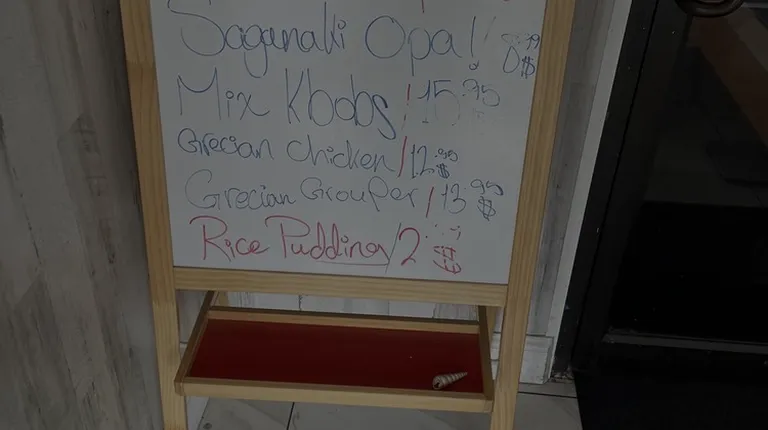 Saganaki Opa! 8.99 $
Mix Kbobs / 15.95
Grecian chicken / 12.95 $
Grecian Grouper / 13.95 $
Rice Pudding / 2 $